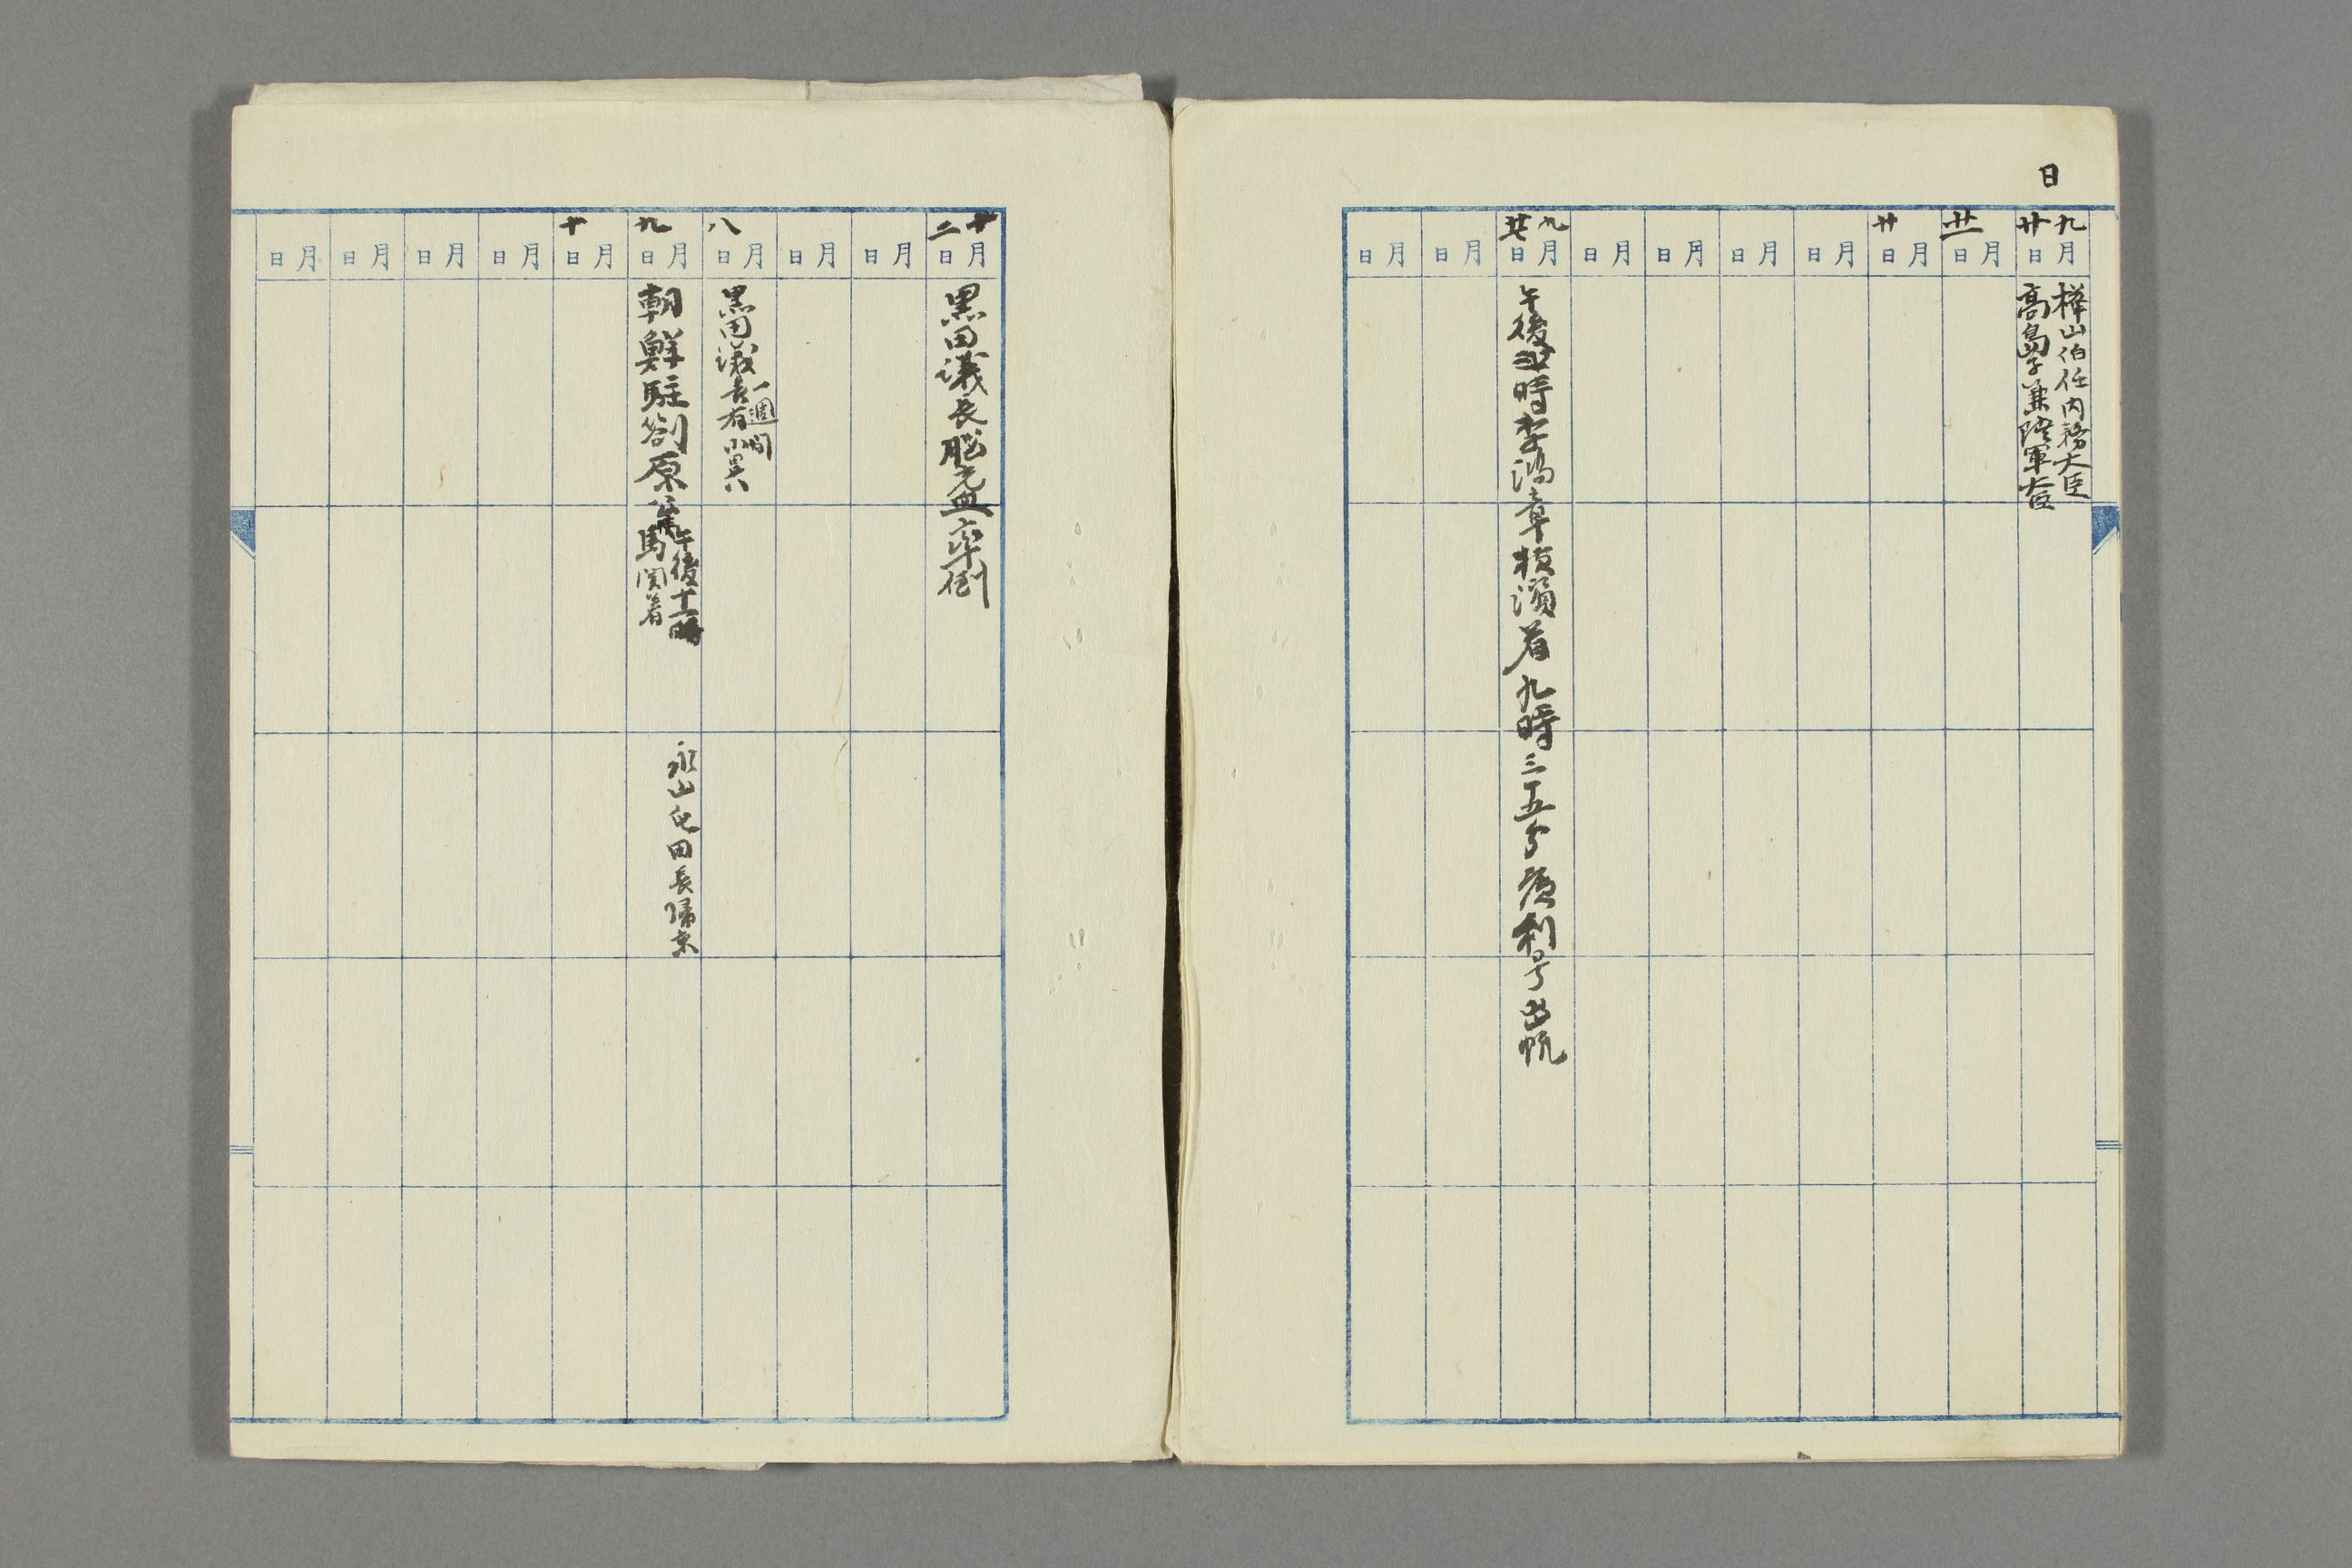 日
九月廿日
樺山伯任内務大臣
高島子兼陸軍大臣
月廿一日
月廿日
月日
月日
月日
月日
九月廿七日
午後 時李鴻章横濱着九時三十五分 利号出帆
月日
月日
十月二日
黒田議長脳充血卒倒
月日
月日
月八日
黒田議長有小異
一週間
月九日
朝鮮駐劄原公使馬関着
午後十一時
永山屯田長帰京
月十日
月日
月日
月日
月日